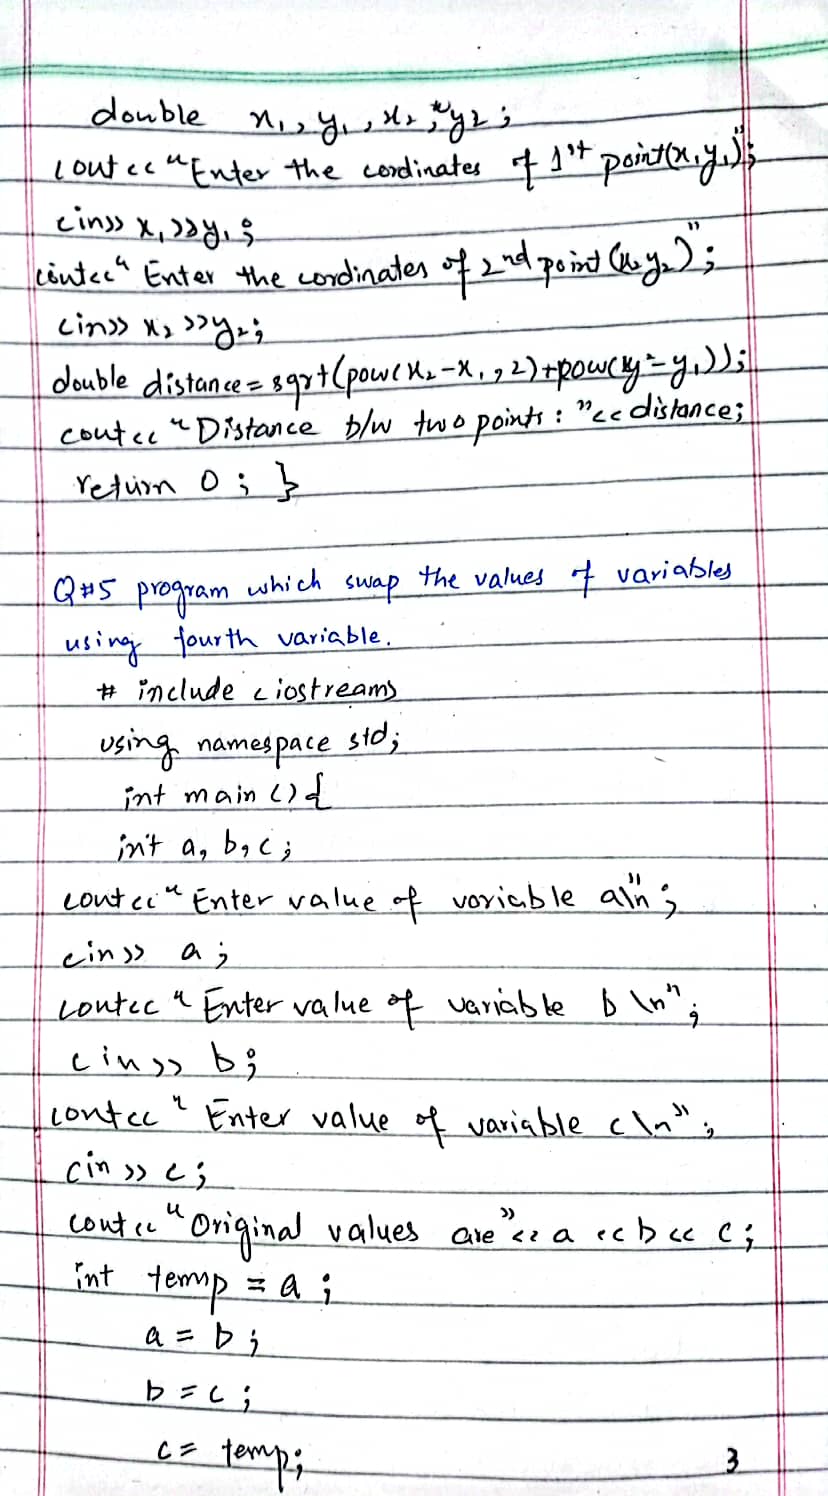 double x₁, y₁, x₂, y₂;
cout<<"Enter the cordinates of 1st point(x₁y₁)";
cin>> x₁>>y₁;
cout<<" Enter the cordinates of 2nd point (x₂y₂)";
cin>> x₂ >>y₂;
double distance = sqrt(pow(x₂-x₁,2)+pow(y₂-y₁));
cout<< "Distance b/w two points: "<< distance;
return 0; }
Q#5 program which swap the values of variables
using fourth variable.
# include <iostream>
using namespace std;
int main () {
int a, b, c;
cout<< "Enter value of variable a\n";
cin>> a;
cout<< "Enter value of variable b \n";
cin>> b;
cout<< "Enter value of variable c \n";
cin >> c;
cout<< "Original values are"<< a << b << c;
int temp = a;
a = b;
b = c;
c = temp;
3